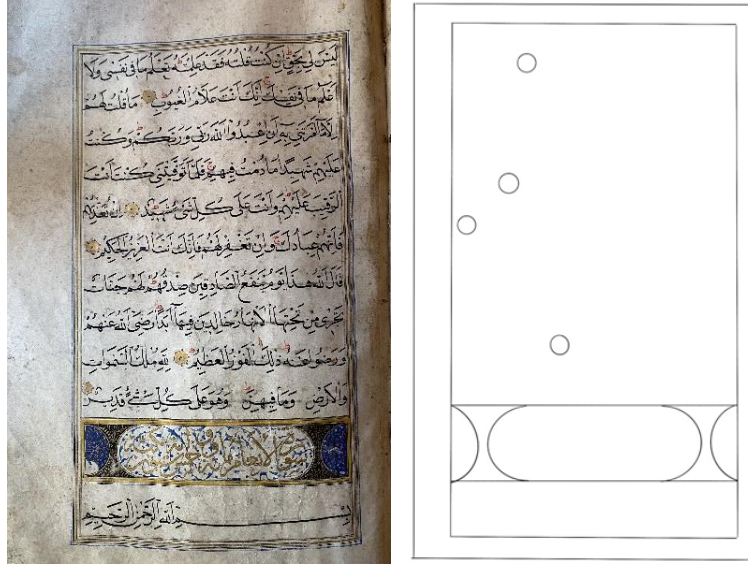 ليس لي بحق ان كنت قلته فقد علمته تعلم ما في نفسي ولا
اعلم ما في نفسك انك انت علام الغيوب ما قلت لهم
الا ما امرتني به ان اعبدوا الله ربي وربكم وكنت
عليهم شهيدا ما دمت فيهم فلما توفيتني كنت انت
الرقيب عليهم وانت على كل شئ شهيد ان تعذبهم
فانهم عبادك وان تغفر لهم فانك انت العزيز الحكيم
قال الله هذا يوم ينفع الصادقين صدقهم لهم جنات
تجري من تحتها الانهار خالدين فيها ابدا رضي الله عنهم
ورضوا عنه ذلك الفوز العظيم لله ملك السموات
والارض وما فيهن وهو على كل شئ قدير
سورة الانعام
بسم الله الرحمن الرحيم